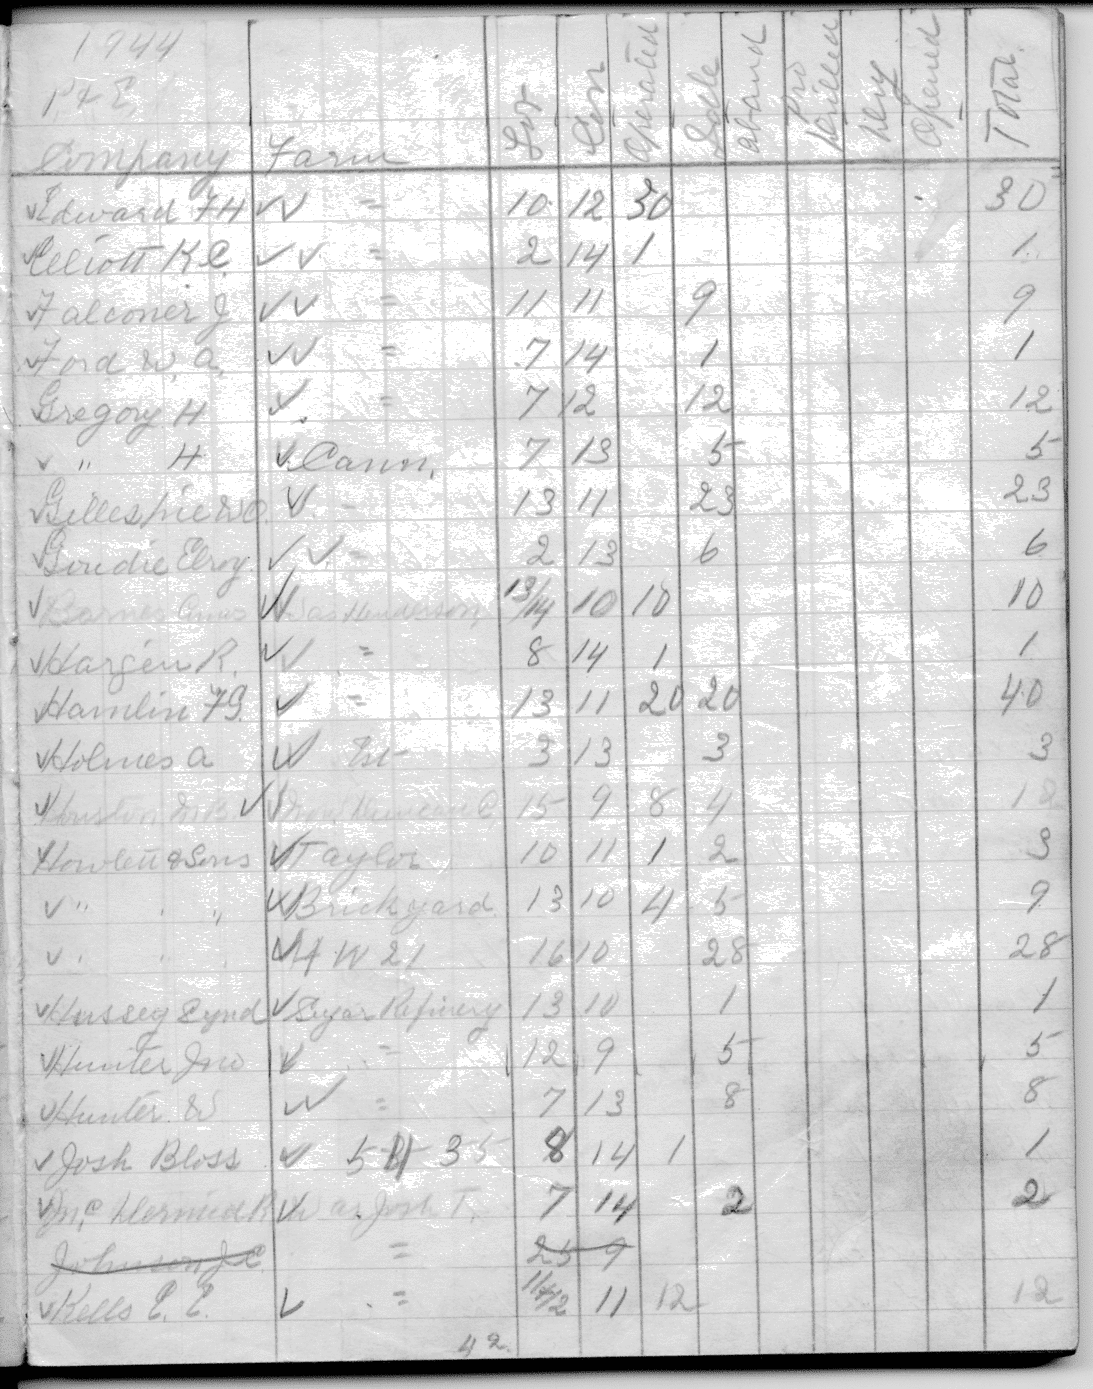 1944
P & E
Company Farm Lot Con Operated Idle aband pro drilled New Opened Total
✓Edward F H ✓✓ = 10 12 30 30
✓Elliott K.C. ✓✓ = 2 14 1 1
✓Falconer J ✓✓ = 11 11 9 9
✓Ford W. A. ✓✓ = 7 14 1 1
Gregory H ✓ = 7 12 12 12
✓ " H ✓ Cann. 7 13 5 5
✓Gillespie W O. ✓ - 13 11 23 23
✓Goudie Elroy ✓✓ = 2 13 6 6
✓Barnes Amos ✓ Was Henderson 13/14 10 10 10
✓Hargen R. ✓✓ = 8 14 1 1
✓Hamlin F G. ✓ = 13 11 20 20 40
✓Holmes A ✓ Est 3 13 3 3
✓Houston ✓ 15 9 8 4 12
✓Howlett & Sons ✓ Taylor 10 11 1 2 3
✓ " " ✓ Brickyard 13 10 4 5 9
✓ " " ✓ H W 21 16 10 28 28
✓Hussey Synd ✓ Sugar Refinery 13 10 1 1
✓Hunter Jno ✓ = 12 9 5 5
✓Hunter W ✓ = 7 13 8 8
✓Josh Bloss ✓ 8 14 1 1
✓McDermid R ✓ Was Josh T. 7 14 2 2
Johnson J. C = 25 9
✓Kells E. E. ✓ = 11+12 11 12 12
42.